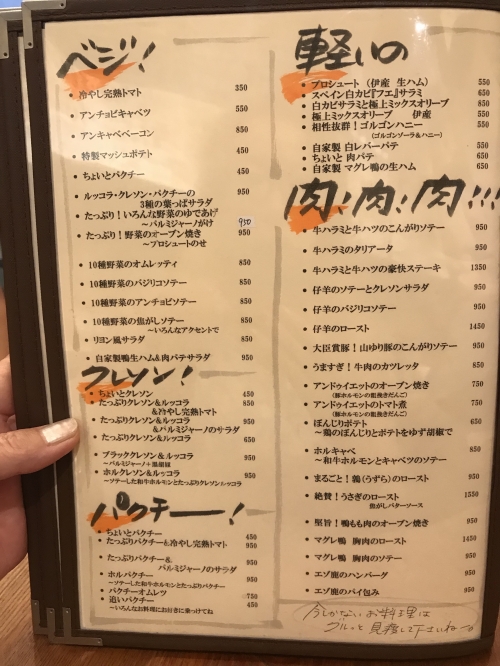 ベジ！
・冷やし完熟トマト 350
・アンチョビキャベツ 550
・アンキャベベーコン 850
・特製マッシュポテト 450
・ちょいとパクチー 450
・ルッコラ・クレソン・パクチーの 950
3種の葉っぱサラダ
・たっぷり！いろんな野菜のゆであげ
～パルミジャーノがけ 950
・たっぷり！野菜のオーブン焼き 950
～プロシュートのせ
・10種野菜のオムレッティ 850
・10種野菜のバジリコソテー 850
・10種野菜のアンチョビソテー 850
・10種野菜の焦がしソテー 850
～いろんなアクセントで
・リヨン風サラダ 850
・自家製鴨生ハム&肉パテサラダ 950
クレソン！
・ちょいとクレソン 450
・たっぷりクレソン&ルッコラ 850
&冷やし完熟トマト
・たっぷりクレソン&ルッコラ 950
&パルミジャーノのサラダ
・たっぷりクレソン&ルッコラ 650
・ブラッククレソン&ルッコラ 950
～パルミジャーノ+黒胡椒
・ホルクレソン&ルッコラ 950
～ソテーした和牛ホルモンとたっぷりクレソン&ルッコラ
パクチー！
・ちょいとパクチー 450
・たっぷりパクチー&冷やし完熟トマト 950
・たっぷりパクチー& 950
パルミジャーノのサラダ
・ホルパクチー 950
～ソテーした和牛ホルモンとたっぷりパクチー
・パクチーオムレツ 750
・追いパクチー 450
～いろんなお料理にお好きに乗っけてね
軽いの
・プロシュート（伊産 生ハム） 550
・スペイン白カビ『フエ』サラミ 650
・白カビサラミと極上ミックスオリーブ 850
・極上ミックスオリーブ 伊産 550
・相性抜群！ゴルゴンハニー 550
（ゴルゴンゾーラ&ハニー）
・自家製 白レバーパテ 550
・ちょいと 肉パテ 650
・自家製 マグレ鴨の生ハム 650
肉！肉！肉！！！
・牛ハラミと牛ハツのこんがりソテー 950
・牛ハラミのタリアータ 950
・牛ハラミと牛ハツの豪快ステーキ 1350
・仔羊のソテーとクレソンサラダ 950
・仔羊のバジリコソテー 950
・仔羊のロースト 1450
・大臣賞豚！山ゆり豚のこんがりソテー 950
・うますぎ！牛肉のカツレッタ 850
・アンドゥイエットのオーブン焼き 750
（豚ホルモンの粗挽きだんご）
・アンドゥイエットのトマト煮 750
（豚ホルモンの粗挽きだんご）
・ぼんじりポテト 650
～鶏のぼんじりとポテトをゆず胡椒で
・ホルキャベ 850
～和牛ホルモンとキャベツのソテー
・まるごと！鶉（うずら）のロースト 950
・絶賛！うさぎのロースト 1550
焦がしバターソース
・堅旨！鴨もも肉のオーブン焼き 950
・マグレ鴨 胸肉のロースト 1450
・マグレ鴨 胸肉のソテー 950
・エゾ鹿のハンバーグ 950
・エゾ鹿のパイ包み 950
今しかないお料理は
グルっと見渡して下さいねーっ